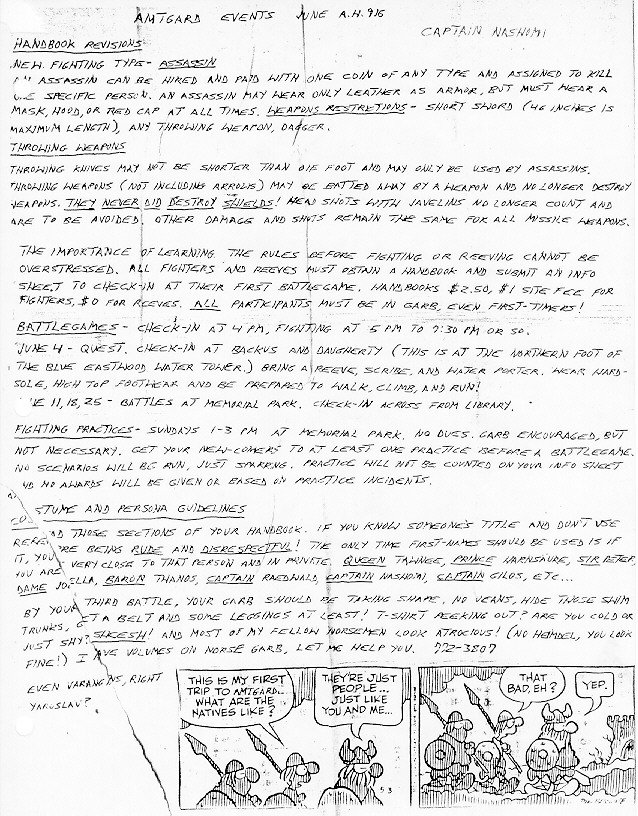 AMTGARD EVENTS JUNE A.H. 916
CAPTAIN NASHOMI
HANDBOOK REVISIONS
NEW FIGHTING TYPE - ASSASSIN
AN ASSASSIN CAN BE HIRED AND PAID WITH ONE COIN OF ANY TYPE AND ASSIGNED TO KILL
ONE SPECIFIC PERSON. AN ASSASSIN MAY WEAR ONLY LEATHER AS ARMOR, BUT MUST WEAR A
MASK, HOOD, OR RED CAP AT ALL TIMES. WEAPONS RESTRICTIONS - SHORT SWORD (46 INCHES IS
MAXIMUM LENGTH), ANY THROWING WEAPON, DAGGER.
THROWING WEAPONS
THROWING KNIVES MAY NOT BE SHORTER THAN ONE FOOT AND MAY ONLY BE USED BY ASSASSINS.
THROWING WEAPONS (NOT INCLUDING ARROWS) MAY BE BATTED AWAY BY A WEAPON AND NO LONGER DESTROY
WEAPONS. THEY NEVER DID DESTROY SHIELDS! HEAD SHOTS WITH JAVELINS NO LONGER COUNT AND
ARE TO BE AVOIDED. OTHER DAMAGE AND SHOTS REMAIN THE SAME FOR ALL MISSILE WEAPONS.
THE IMPORTANCE OF LEARNING THE RULES BEFORE FIGHTING OR REEVING CANNOT BE
OVERSTRESSED. ALL FIGHTERS AND REEVES MUST OBTAIN A HANDBOOK AND SUBMIT AN INFO
SHEET TO CHECK-IN AT THEIR FIRST BATTLEGAME. HANDBOOKS $2.50, $1 SITE FEE FOR
FIGHTERS, $0 FOR REEVES. ALL PARTICIPANTS MUST BE IN GARB, EVEN FIRST-TIMERS!
BATTLEGAMES - CHECK-IN AT 4 PM, FIGHTING AT 5 PM TO 7:30 PM OR SO.
JUNE 4 - QUEST. CHECK-IN AT BACKUS AND DAUGHERTY (THIS IS AT THE NORTHERN FOOT OF
THE BLUE EASTWOOD WATER TOWER.) BRING A REEVE, SCRIBE, AND WATER PORTER. WEAR HARD-
SOLE, HIGH TOP FOOTWEAR AND BE PREPARED TO WALK, CLIMB, AND RUN!
NE 11, 18, 25 - BATTLES AT MEMORIAL PARK. CHECK-IN ACROSS FROM LIBRARY.
FIGHTING PRACTICES - SUNDAYS 1-3 PM AT MEMORIAL PARK. NO DUES. GARB ENCOURAGED, BUT
NOT NECESSARY. GET YOUR NEW-COMERS TO AT LEAST ONE PRACTICE BEFORE A BATTLEGAME.
NO SCENARIOS WILL BE RUN, JUST SPARRING. PRACTICE WILL NOT BE COUNTED ON YOUR INFO SHEET
ND NO AWARDS WILL BE GIVEN OR BASED ON PRACTICE INCIDENTS.
CO STUME AND PERSONA GUIDELINES
REFE D THOSE SECTIONS OF YOUR HANDBOOK. IF YOU KNOW SOMEONE'S TITLE AND DON'T USE
IT, YOU RE BEING RUDE AND DISRESPECTFUL! THE ONLY TIME FIRST-NAMES SHOULD BE USED IS IF
YOU ARE VERY CLOSE TO THAT PERSON AND IN PRIVATE. QUEEN TAWNEE, PRINCE HARNSURE, SIR PETER,
DAME JOELLA, BARON THANOS, CAPTAIN RAEDWALD, CAPTAIN NASHOMI, CAPTAIN GILOS, ETC...
BY YOUR THIRD BATTLE, YOUR GARB SHOULD BE TAKING SHAPE. NO JEANS, HIDE THOSE SWIM
TRUNKS, GET A BELT AND SOME LEGGINGS AT LEAST! T-SHIRT PEEKING OUT? ARE YOU COLD OR
JUST SHY? SHEESH! AND MOST OF MY FELLOW NORSEMEN LOOK ATROCIOUS! (NO HEIMDEL, YOU LOOK
FINE!) I HAVE VOLUMES ON NORSE GARB, LET ME HELP YOU. 772-3807
EVEN VARANGINS, RIGHT
YAROSLAV?
THIS IS MY FIRST
TRIP TO AMTGARD...
WHAT ARE THE
NATIVES LIKE?
THEY'RE JUST
PEOPLE...
JUST LIKE
YOU AND ME...
THAT
BAD, EH?
YEP.
5-3